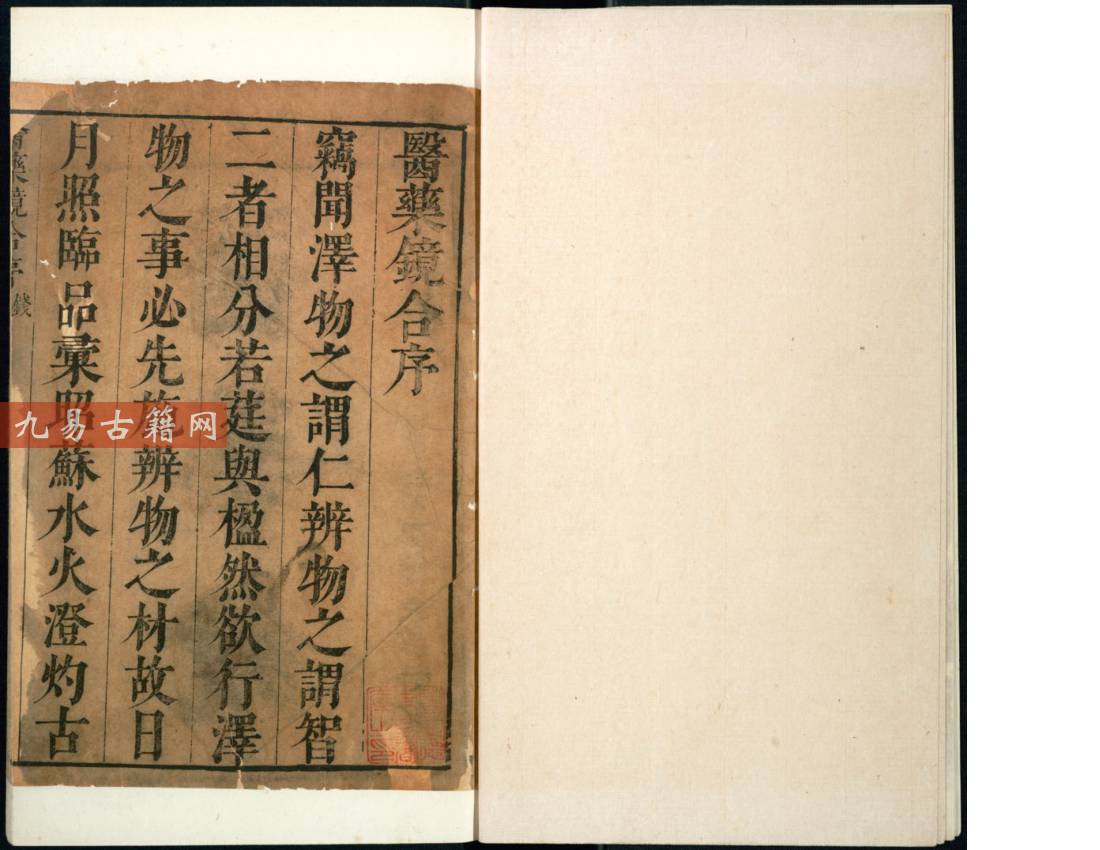 醫藥鏡合序
竊聞澤物之謂仁辨物之謂智
二者相分若莛與楹然欲行澤
物之事必先施辨物之材故日
月照臨品彙昭蘇水火澄灼古
藥鏡合序
錢
九易古籍网